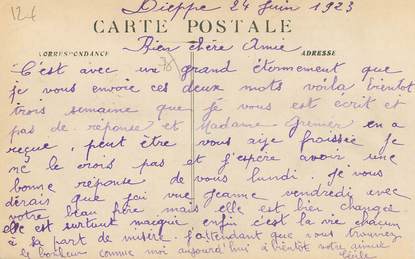 12€
Dieppe 24 Juin 1923
CARTE POSTALE
CORRESPONDANCE
ADRESSE
Bien chère Amie
76
C'est avec un grand étonnement que
je vous envoie ces deux mots voila bientot
trois semaine que je vous est écrit et
pas de réponse et Madame Grenier en a
reçue, peut être vous aije froissée je
ne le crois pas et j'espère avoir une
bonne réponse de vous lundi. Je vous
dérais que j'ai vue Jeanne vendredi avec
votre beau frère mais elle est bien changée
elle est surtout maigri enfin c'est la vie chacun
à sa part de misère. j'attendant que vous trouviez
le bonheur comme moi aujourd'hui à bientôt votre amie